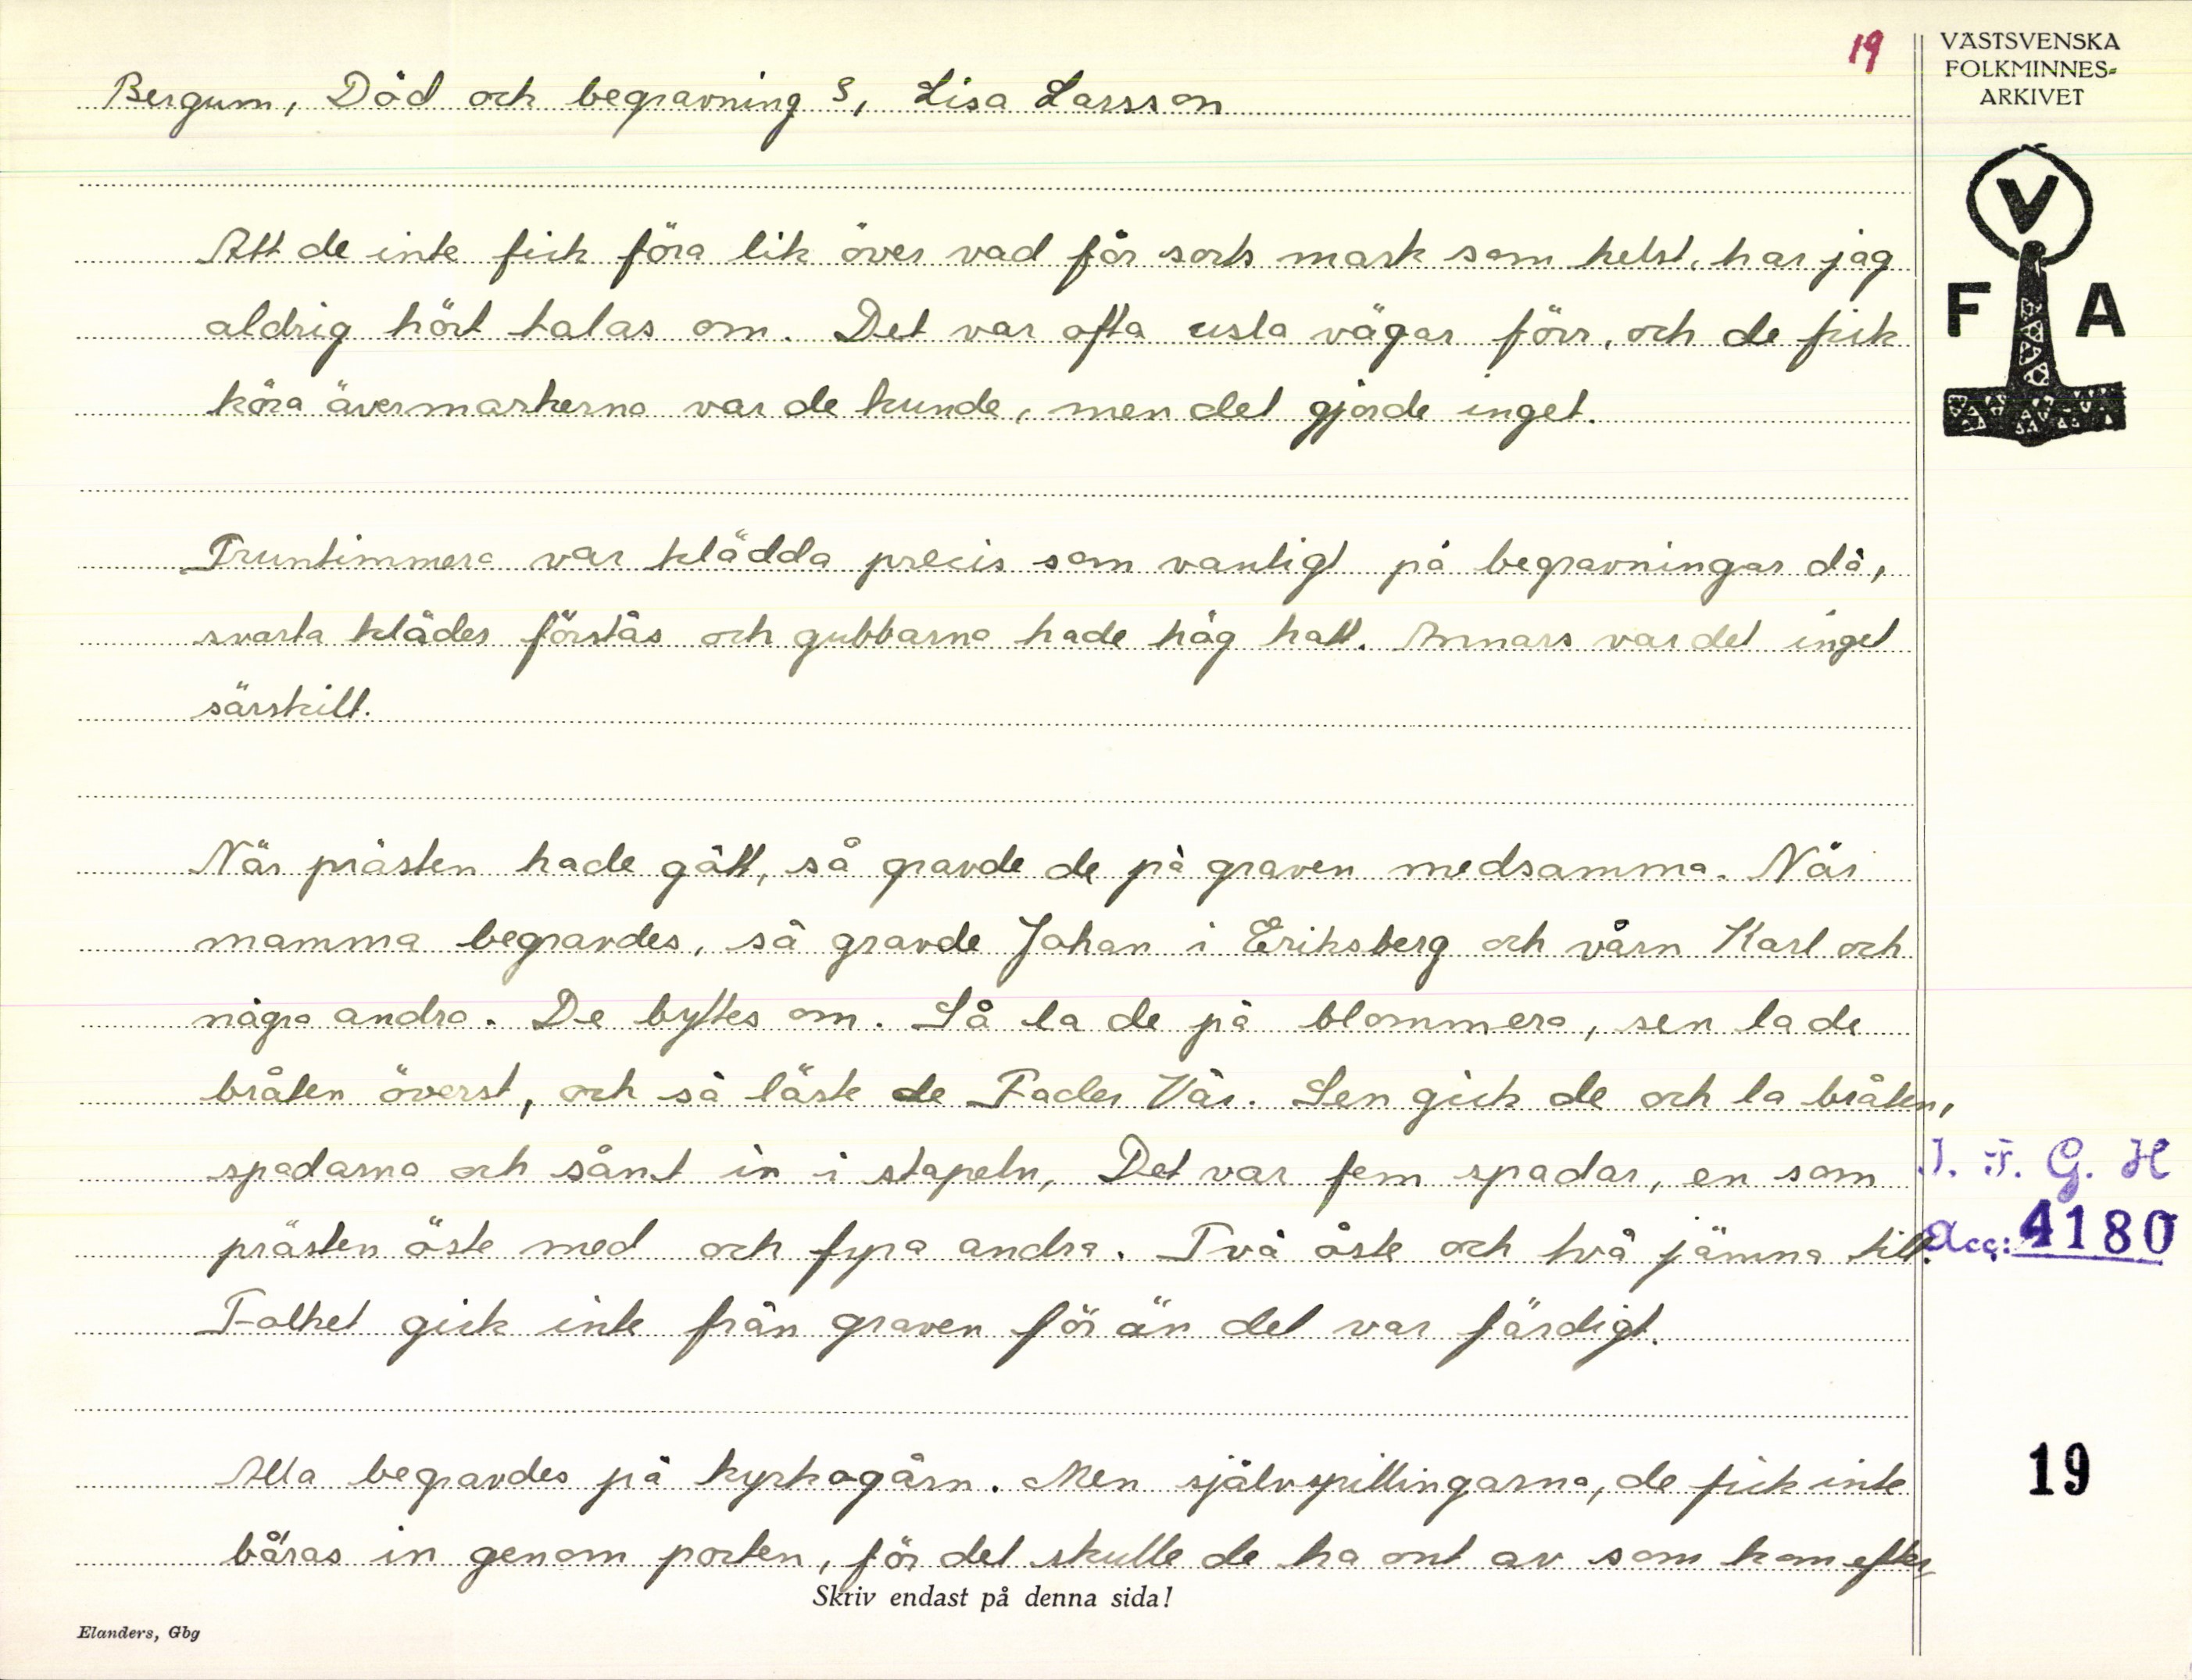 19
Bergum, Död och begravning 8, Lisa Larsson
VÄSTSVENSKA
FOLKMINNES-
ARKIVET
V
F A
Att de inte fick föra lik över vad för sorts mark som helst, har jag
aldrig hört talas om. Det var ofta usla vägar förr, och de fick
köra övermarkerna var de kunde, men det gjorde inget.
Fruntimmera var klädda precis som vanligt på begravningar då,
svarta kläder förstås och gubbarna hade hög hatt. Annars var det inget
särskilt.
När prästen hade gått, så gravde de på graven medsamma. När
mamma begravdes, så gravde Johan i Eriksberg och vårn Karl och
några andra. De byttes om. Så la de på blommera, sen la de
bråten överst, och så läste de Fader Vår. Sen gick de och la bråten,
spadarna och sånt in i stapeln, Det var fem spadar, en som
prästen öste med och fyra andra. Två öste och två jämna till.
Folket gick inte från graven förän det var färdigt.
I. F. G. H
Acc: 4180
Alla begravdes på kyrkogårn. Men självspillingarna, de fick inte
båras in genom porten, för det skulle de ha ont av som kom efter,
19
Skriv endast på denna sida!
Elanders, Gbg